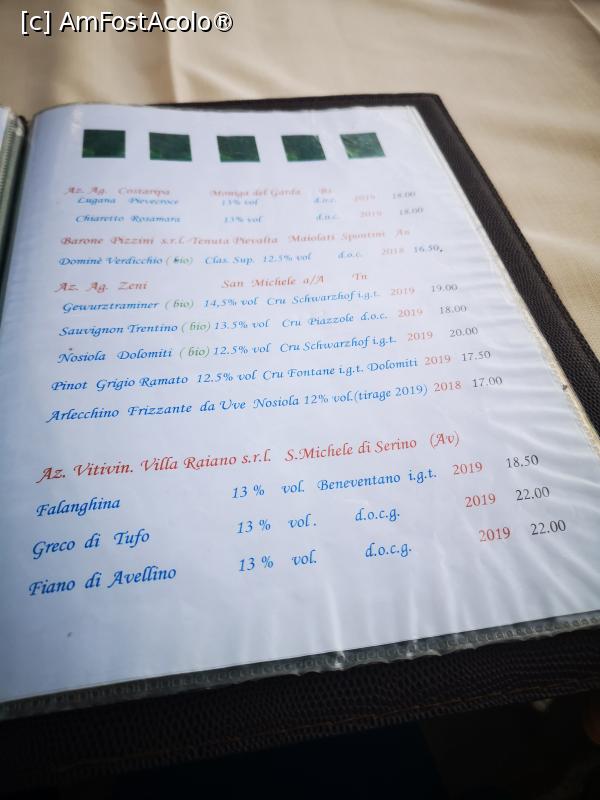 [c] AmFostAcolo®
Az. Ag. Costaripa Moniga del Garda Bs
Lugana Pievecroce 13% vol d.o.c. 2019 18.00
Chiaretto Rosamara 13% vol d.o.c. 2019 18.00
Barone Pizzini s.r.l. Tenuta Pievalta Maiolati Spontini An
Dominè Verdicchio (bio) Clas. Sup. 12.5% vol d.o.c. 2018 16.50
Az. Ag. Zeni San Michele a/A Tn
Gewurztraminer (bio) 14,5% vol Cru Schwarzhof i.g.t. 2019 19.00
Sauvignon Trentino (bio) 13.5% vol Cru Piazzole d.o.c. 2019 18.00
Nosiola Dolomiti (bio) 12.5% vol Cru Schwarzhof i.g.t. 2019 20.00
Pinot Grigio Ramato 12.5% vol Cru Fontane i.g.t. Dolomiti 2019 17.50
Arlecchino Frizzante da Uve Nosiola 12% vol.(tirage 2019) 2018 17.00
Az. Vitivin. Villa Raiano s.r.l. S.Michele di Serino (Av)
Falanghina 13 % vol. Beneventano i.g.t. 2019 18.50
Greco di Tufo 13 % vol. d.o.c.g. 2019 22.00
Fiano di Avellino 13 % vol. d.o.c.g. 2019 22.00